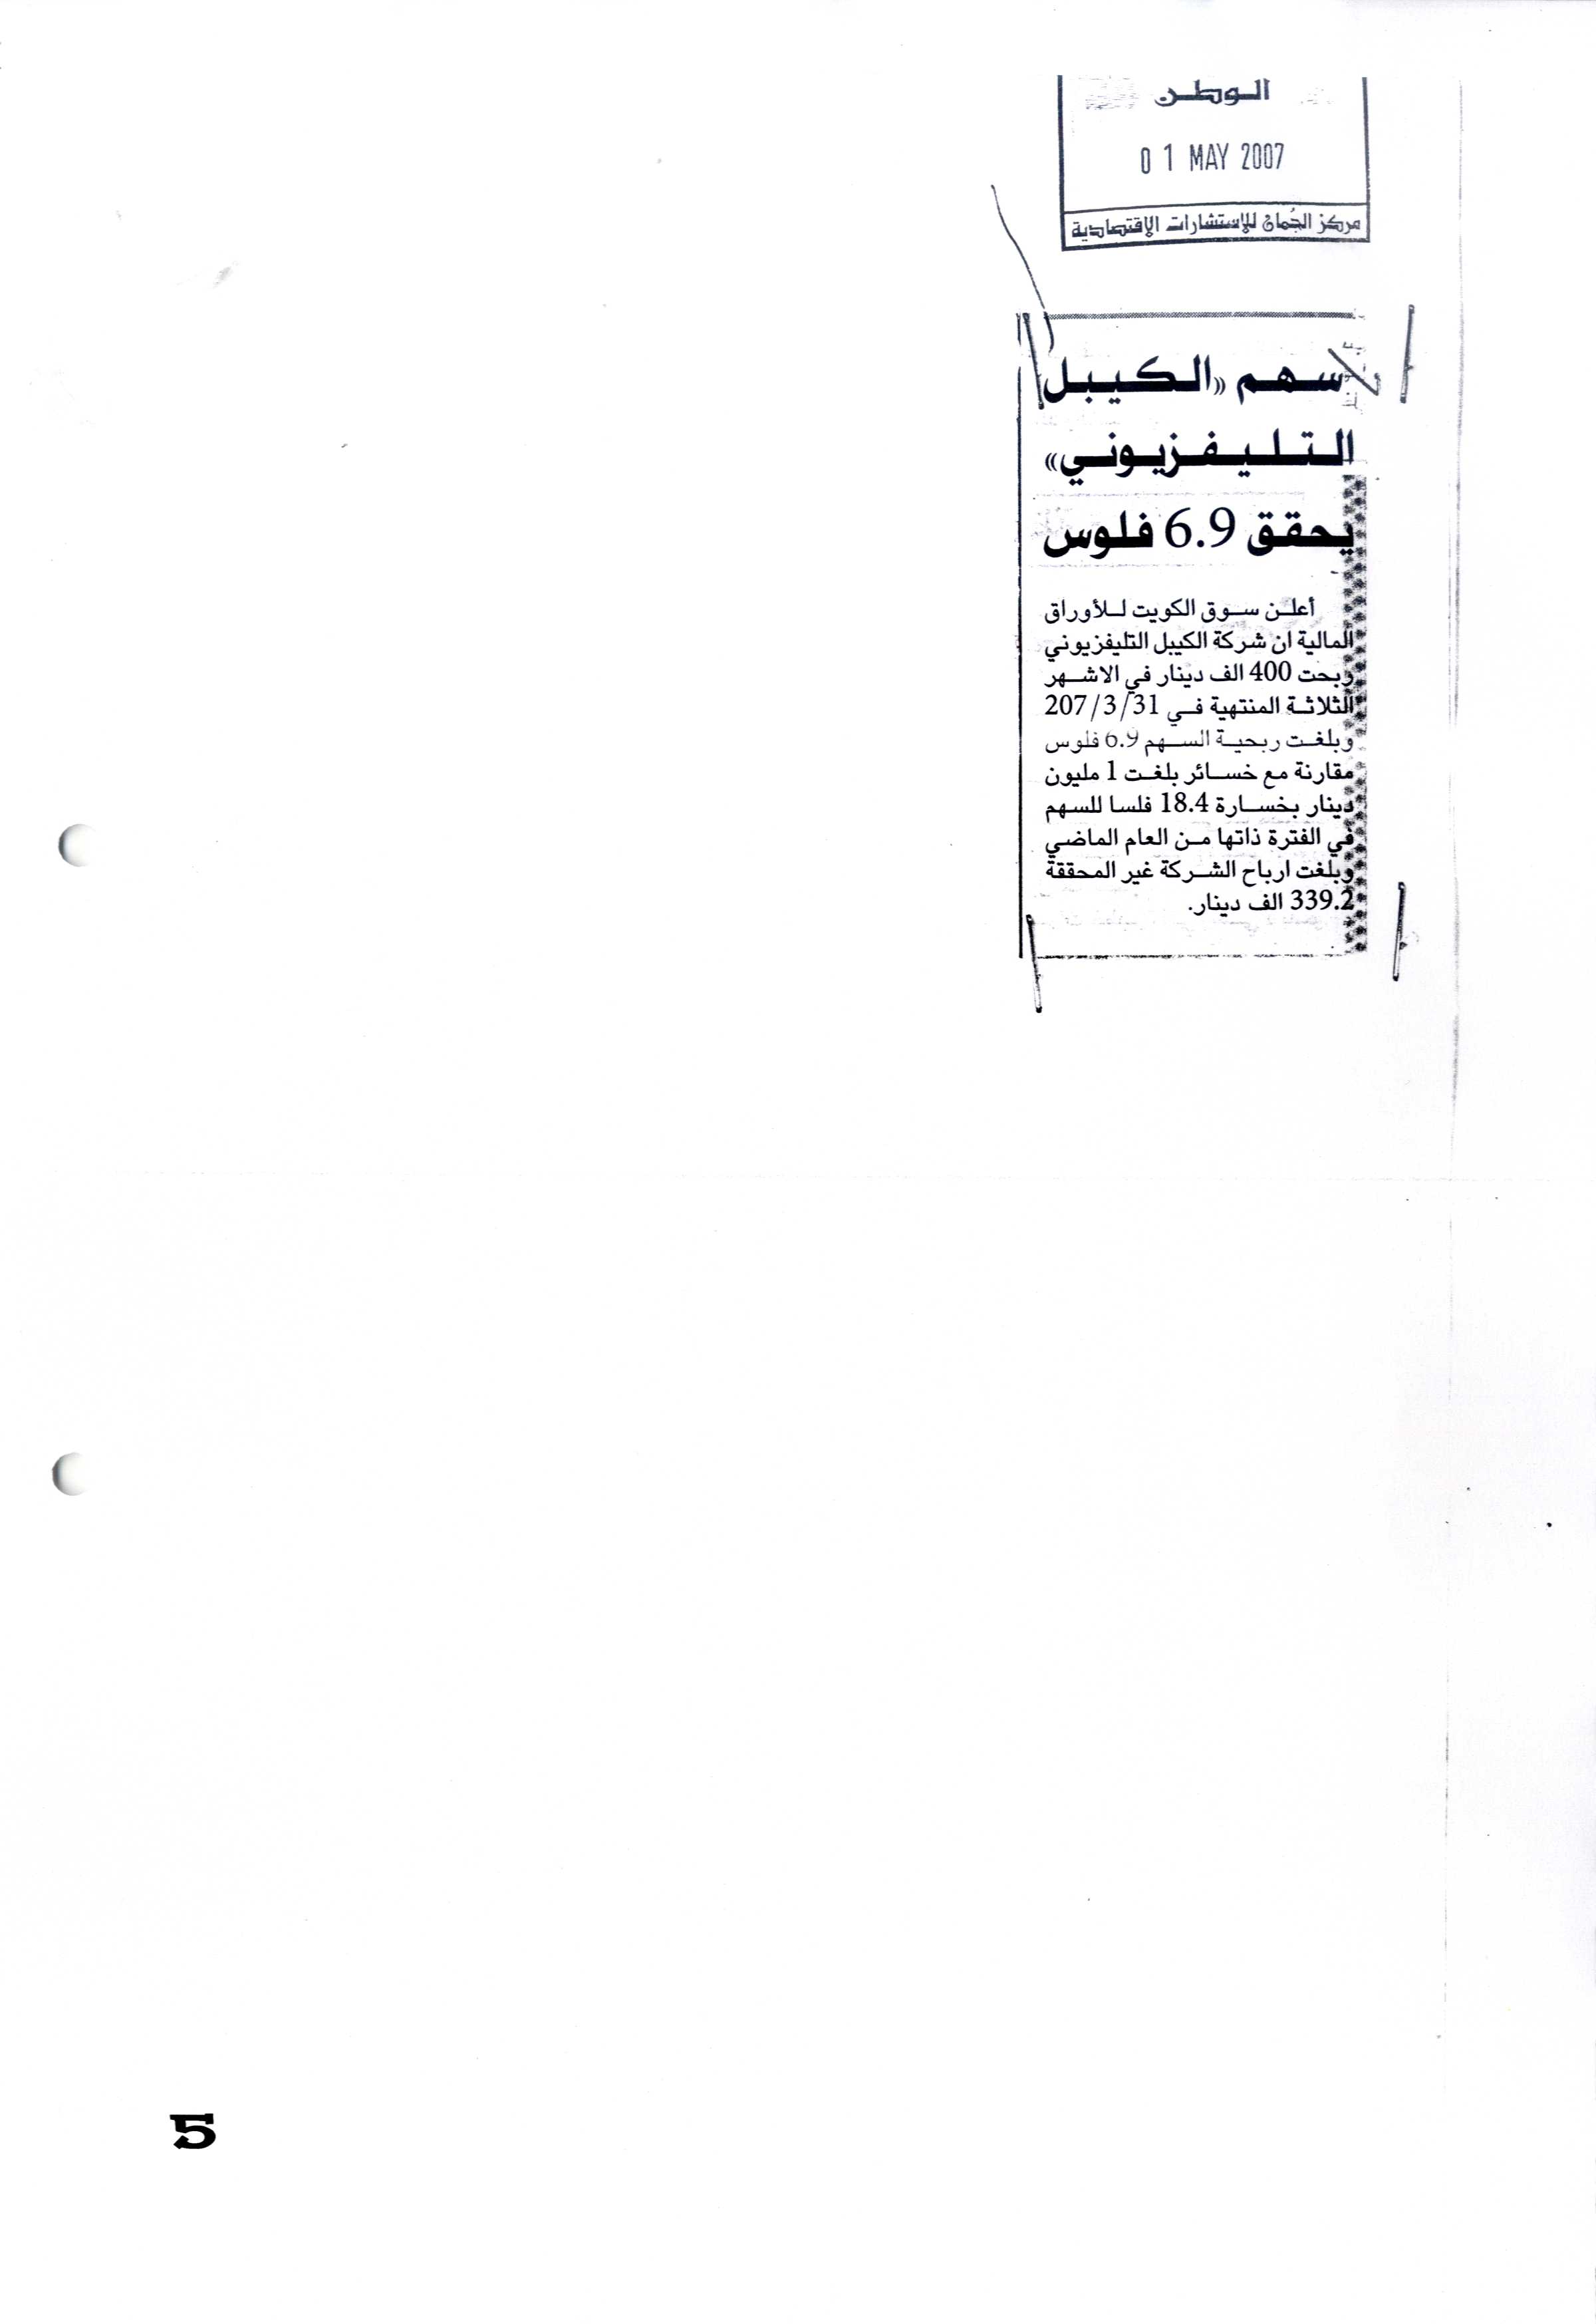 الوطن
01 MAY 2007
مركز الجُمان للإستشارات الإقتصادية
سهم «الكيبل
التليفزيوني»
يحقق 6.9 فلوس
أعلن سوق الكويت للأوراق
المالية ان شركة الكيبل التليفزيوني
ربحت 400 الف دينار في الاشهر
الثلاثة المنتهية في 207/3/31
وبلغت ربحية السهم 6.9 فلوس
مقارنة مع خسائر بلغت 1 مليون
دينار بخسارة 18.4 فلسا للسهم
في الفترة ذاتها من العام الماضي
وبلغت ارباح الشركة غير المحققة
339.2 الف دينار.
5